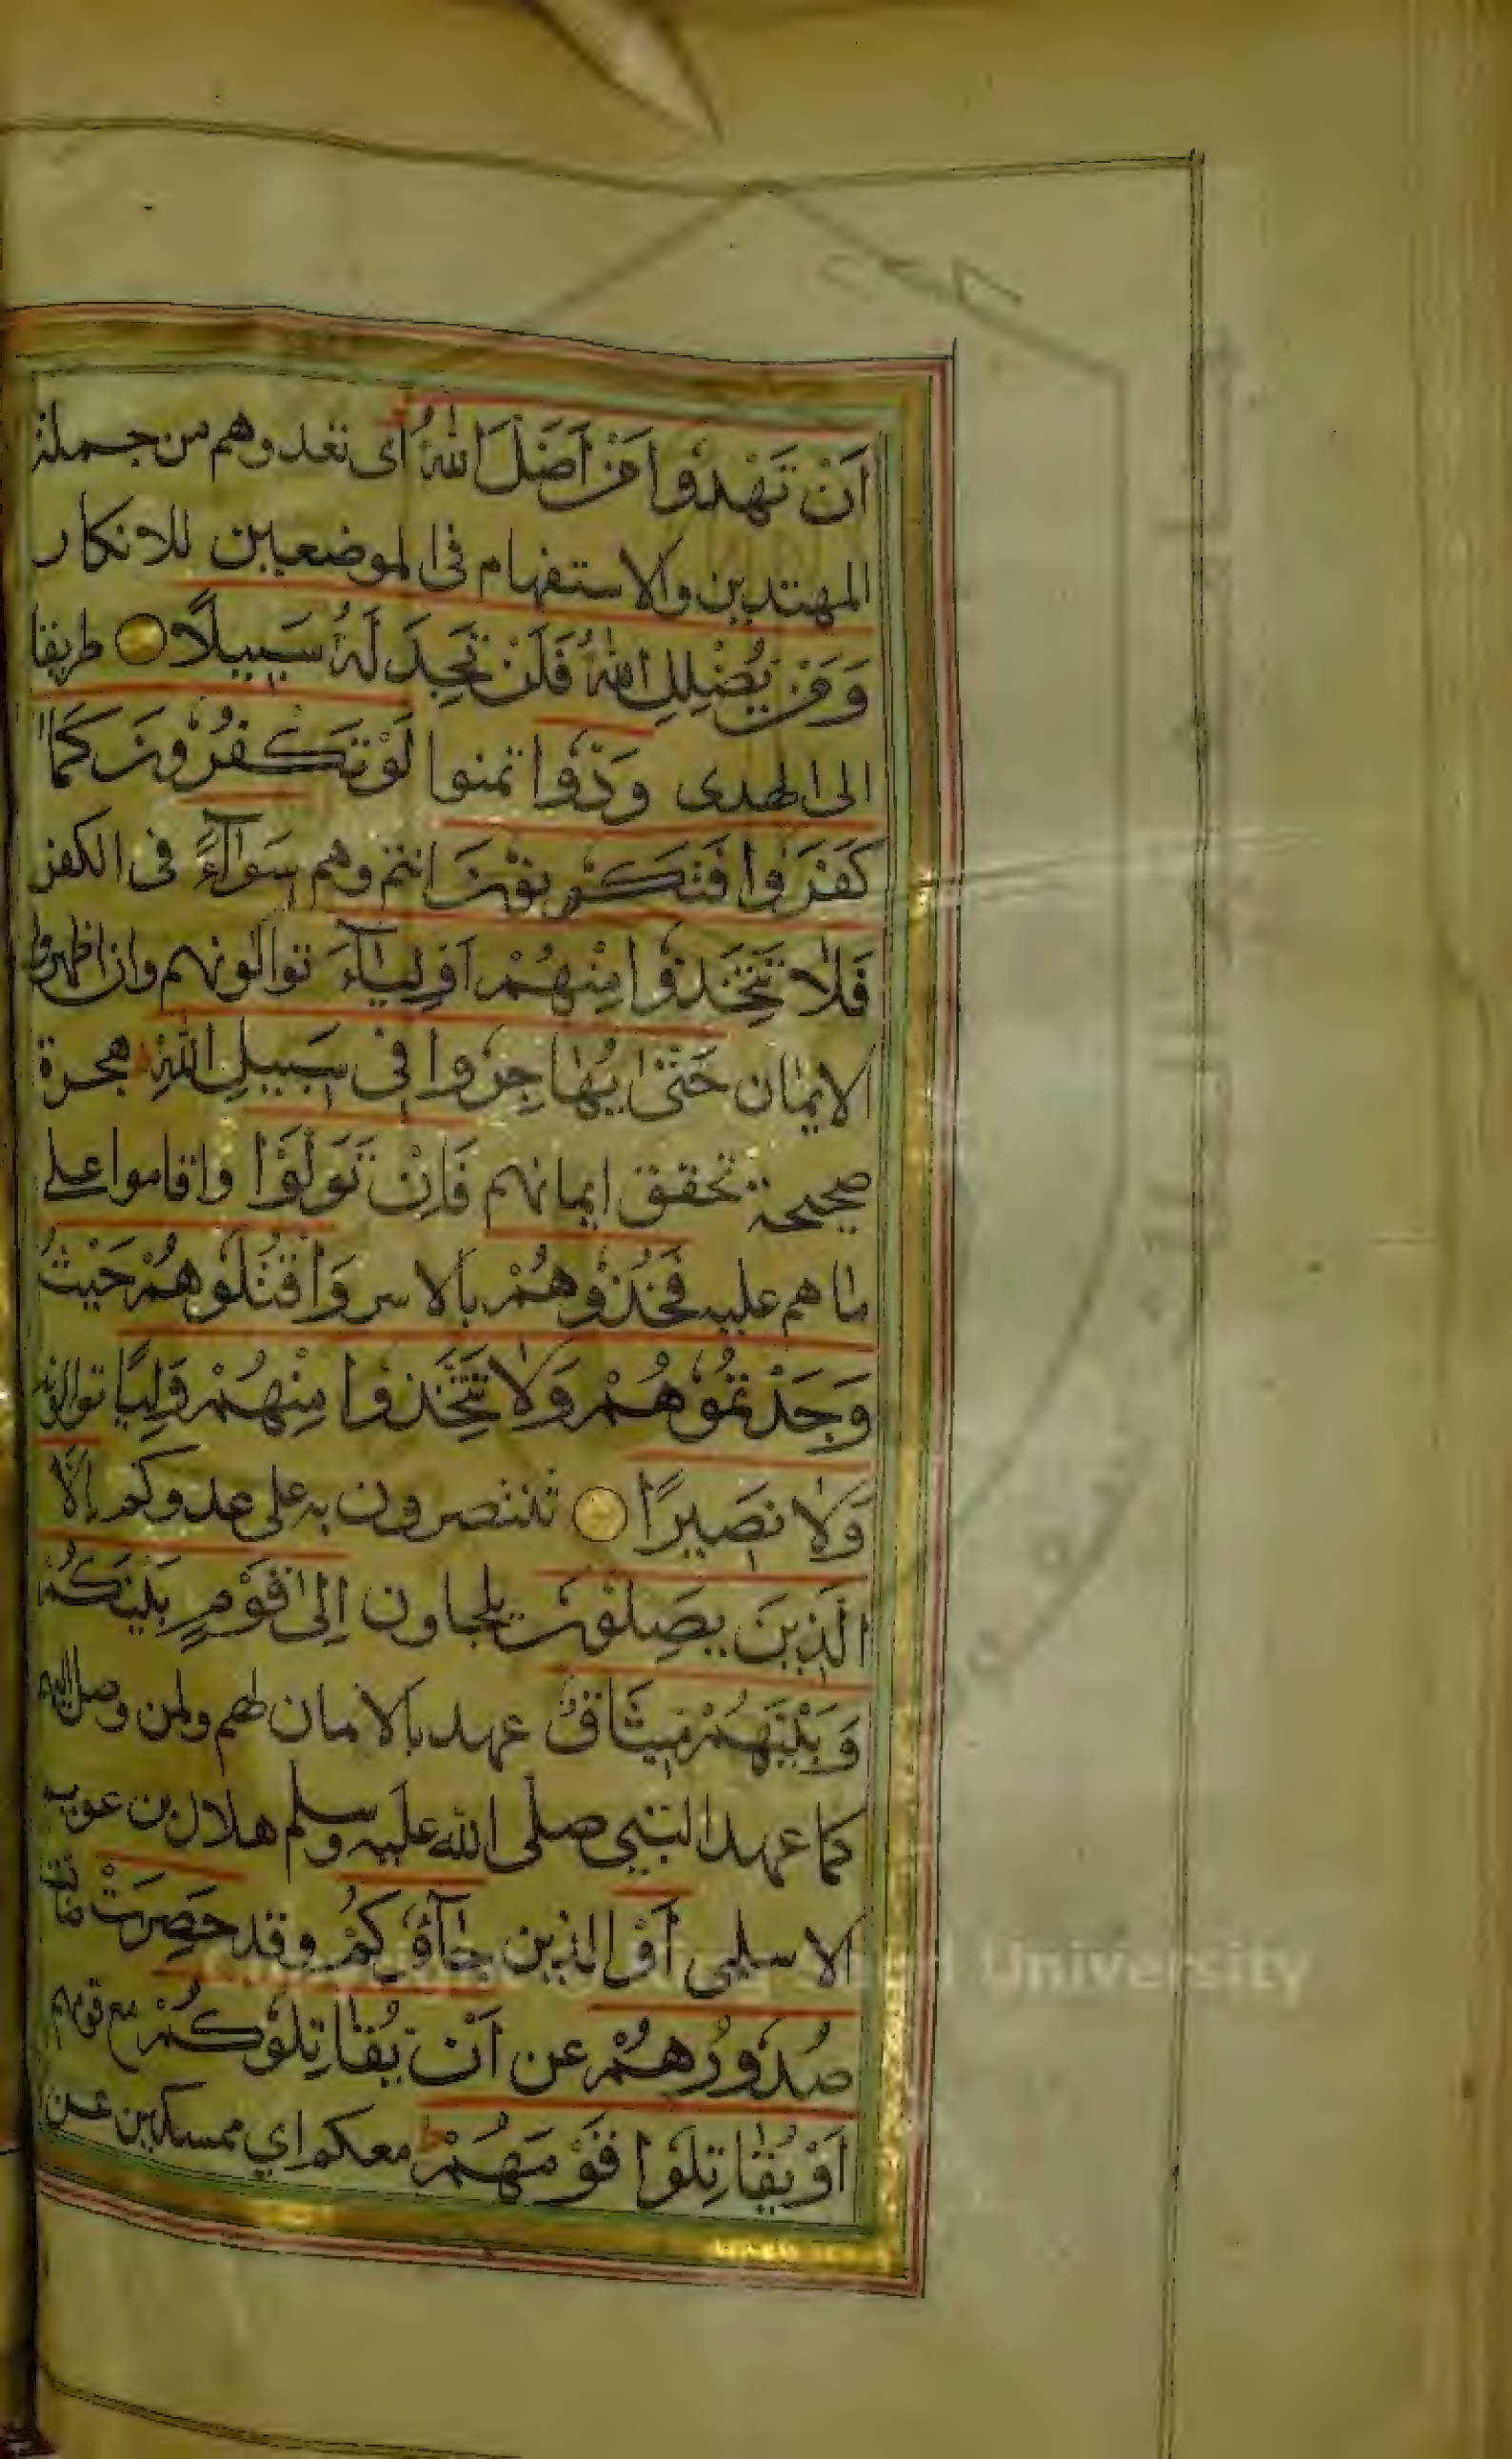 اَنْ تَهْدُوا مَنْ اَضَلَّ اللّٰهُ اى تعدوهم من جملة
المهتدين والاستفهام فى الموضعين للانكار
وَمَنْ يُضْلِلِ اللّٰهُ فَلَنْ تَجِدَ لَهُ سَبِيلًا طريقا
الى الهدى وَدُّوا تمنوا لَوْ تَكْفُرُونَ كَمَا
كَفَرُوا فَتَكُونُونَ انتم وهم سَوَآءً فى الكفر
فَلَا تَتَّخِذُوا مِنْهُمْ اَوْلِيَآءَ توالونهم وان اظهروا
الايمان حَتّٰى يُهَاجِرُوا فِى سَبِيلِ اللّٰهِ هجرة
صحيحة تحقق ايمانهم فَاِنْ تَوَلَّوْا واقاموا على
ما هم عليه فَخُذُوهُمْ بالاسر وَاقْتُلُوهُمْ حَيْثُ
وَجَدْتُمُوهُمْ وَلَا تَتَّخِذُوا مِنْهُمْ وَلِيًّا توالونه
وَلَا نَصِيرًا تنتصرون به على عدوكم اِلَّا
الَّذِينَ يَصِلُونَ يلجاون اِلٰى قَوْمٍ بَيْنَكُمْ
وَبَيْنَهُمْ مِيثَاقٌ عهد بالامان لهم ولمن وصل اليهم
كما عهد النبى صلى الله عليه وسلم هلال بن عويمر
الاسلمى اَوْ الذين جَآؤُكُمْ وقد حَصِرَتْ ضاقت
صُدُورُهُمْ عن اَنْ يُقَاتِلُوكُمْ مع قومهم
اَوْ يُقَاتِلُوا قَوْمَهُمْ معكم اي ممسكين عن
University